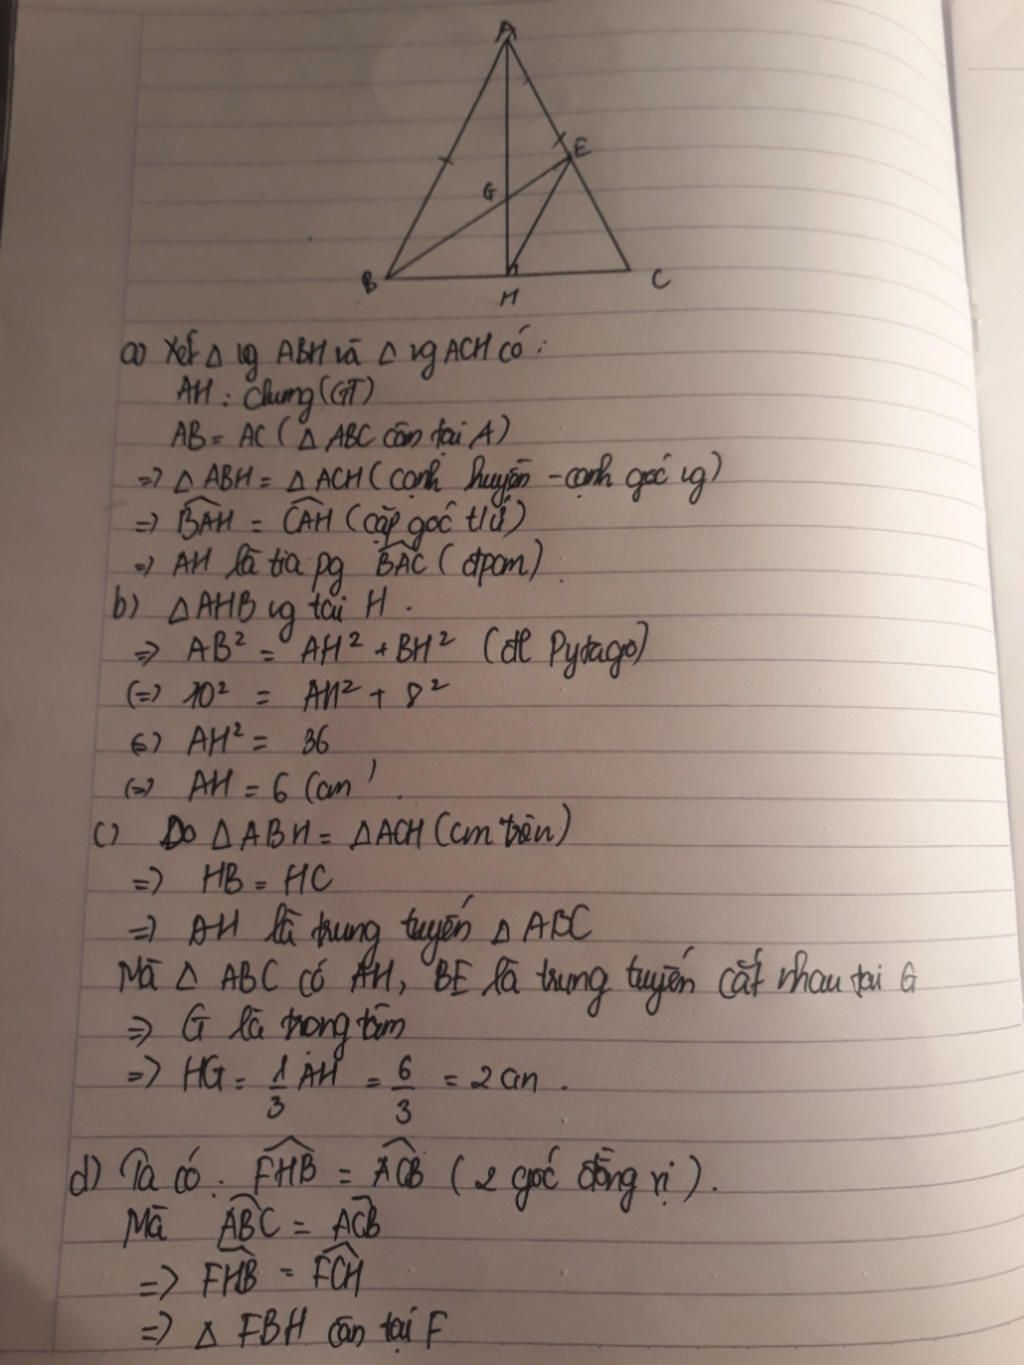 A
E
G
B
H
C
a) Xét Δ vg ABH và Δ vg ACH có :
AH : chung (GT)
AB = AC ( Δ ABC cân tại A)
=> Δ ABH = Δ ACH ( cạnh huyền - cạnh góc vg)
=> BAH = CAH (cặp góc t/ứ)
=> AH là tia pg BAC ( đpcm) .
b) Δ AHB vg tại H .
=> AB² = AH² + BH² (đl Pytago)
(=) 10² = AH² + 8²
(=) AH² = 36
(=) AH = 6 (cm) .
c) Do Δ ABH = Δ ACH (cm trên)
=> HB = HC
=> AH là trung tuyến Δ ABC
Mà Δ ABC có AH, BE là trung tuyến cắt nhau tại G
=> G là trong tâm
=> HG = 1/3 AH = 6/3 = 2 cm .
d) Ta có : FHB = ACB ( 2 góc đồng vị ) .
Mà ABC = ACB
=> FHB = FCH
=> Δ FBH cân tại F